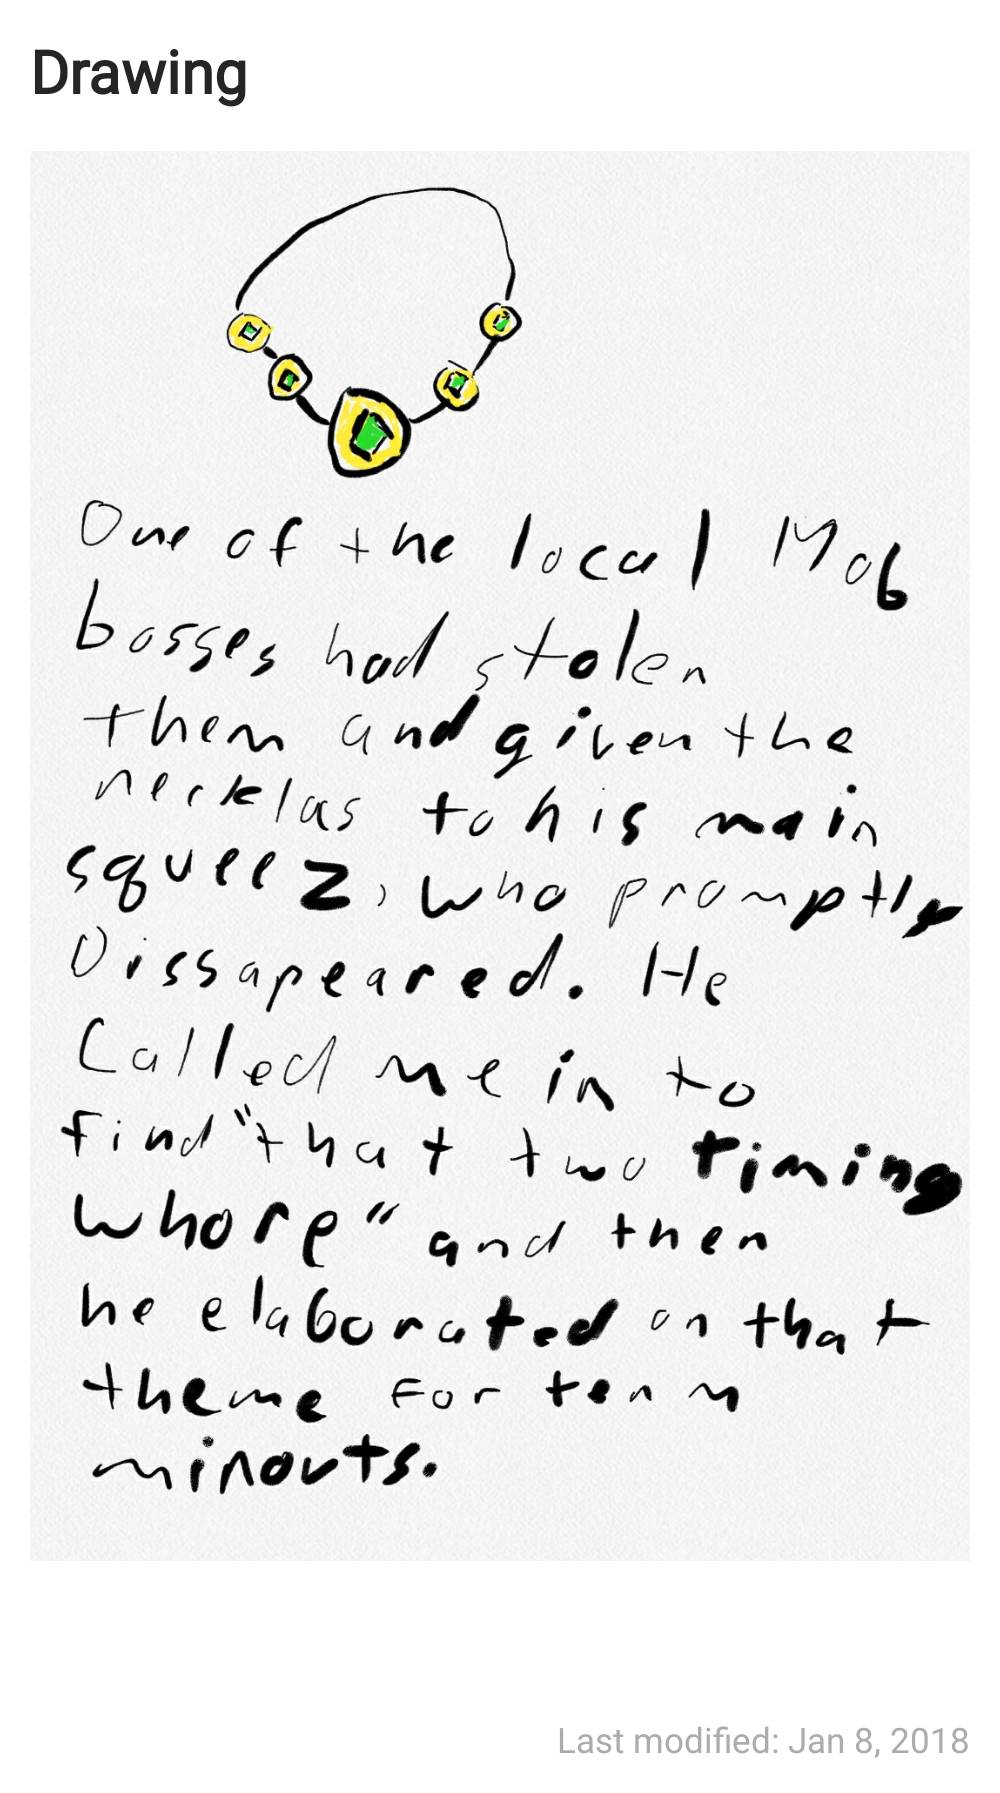 Drawing
One of the local Mob
bosses had stolen
them and given the
necklas to his main
squeez, who promptly
Dissapeared. He
Called me in to
find "that two timing
whore" and then
he elaborated on that
theme For ten m
minouts.
Last modified: Jan 8, 2018